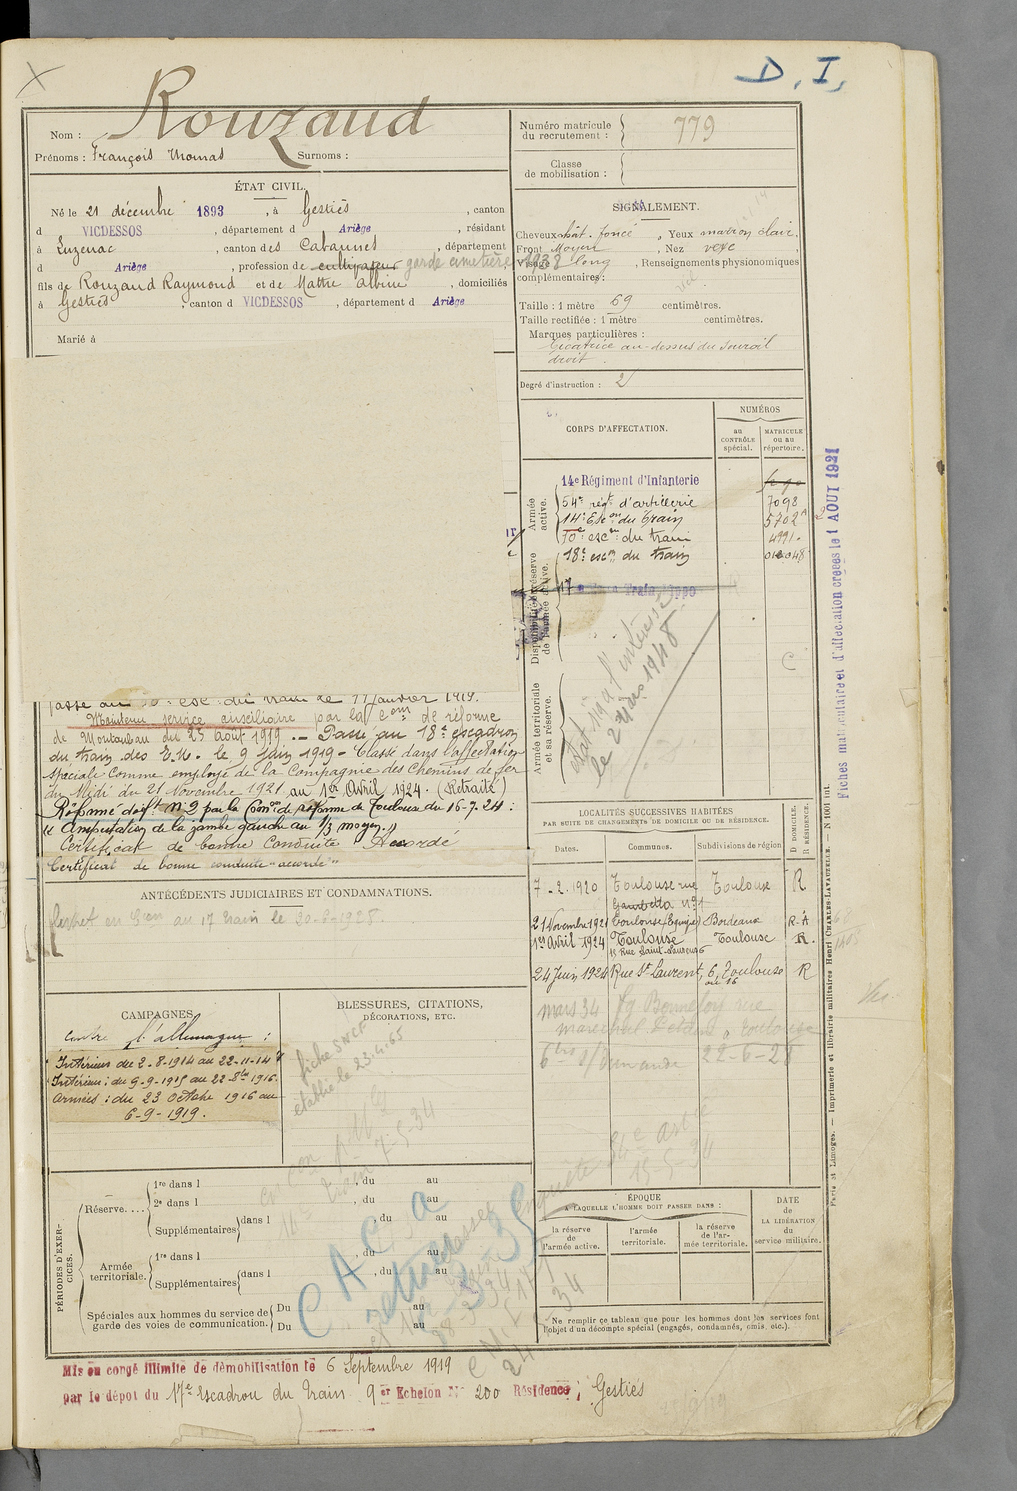 D. I.
Rouzaud
Nom :
Prénoms : François Thomas Surnoms :
Numéro matricule du recrutement : 779
Classe de mobilisation :
ÉTAT CIVIL.
Né le 21 décembre 1893, à Gestiès, canton
d VICDESSOS, département d Ariège, résidant
à Luzenac, canton des Cabannes, département
d Ariège, profession de cultivateur garde cimetière 1938
fils de Rouzaud Raymond et de Mathe Albine, domiciliés
à Gestiès, canton d VICDESSOS, département d Ariège
Marié à
SIGNALEMENT.
Cheveux chât. foncé, Yeux marron clair,
Front Moyen, Nez vexe,
Visage long, Renseignements physionomiques
complémentaires :
Taille : 1 mètre 69 centimètres.
Taille rectifiée : 1 mètre centimètres.
Marques particulières :
Cicatrice au-dessus du sourcil
droit.
Degré d'instruction : 2
CORPS D'AFFECTATION.
NUMÉROS
au CONTRÔLE spécial.
MATRICULE ou au répertoire.
Armée active.
14e Régiment d'Infanterie
54e régt d'artillerie 7098
14e Escon du Train 5702
10e escn du train 4991
18e escn du train
Disponibilité et réserve de l'armée active.
17
Armée territoriale et sa réserve.
le 2 mars 1948
C
passé au 10e esc. du train le 11 janvier 1919.
Maintenu service auxiliaire par la Com de réforme
de Montauban du 25 août 1919. - Passé au 18e escadron
du train des E.M. le 9 juin 1919 - Classé dans l'affectation
spéciale comme employé de la Compagnie des Chemins de fer
du Midi du 21 Novembre 1921 au 1er Avril 1924. (Retraité)
Réformé défift n° 2 par la Comon de réforme de Toulouse du 16-7-24 :
"Amputation de la jambe gauche au 1/3 moyen."
Certificat de bonne conduite Accordé
Certificat de bonne conduite "accordé"
ANTÉCÉDENTS JUDICIAIRES ET CONDAMNATIONS.
au 17 Train le 20-8-1928.
LOCALITÉS SUCCESSIVES HABITÉES
PAR SUITE DE CHANGEMENTS DE DOMICILE OU DE RÉSIDENCE.
D. DOMICILE. R. RÉSIDENCE.
Dates. Communes. Subdivisions de région
7-2-1920 Toulouse rue Gambetta n° 1 Toulouse R
21 Novembre 1921 Toulouse (Equipe) Bordeaux R.A
1er Avril 1924 Toulouse Toulouse R.
15 Rue Saint-Laurens 6
24 Juin 1924 Rue St Laurent, 6, Toulouse R
ou 16
mars 34 fg Bonnefoy rue
22-6-28
15-5-34
CAMPAGNES
Contre l'allemagne :
Intérieur du 2-8-1914 au 22-11-14
Intérieur : du 9-9-1915 au 22-8bre 1916.
Armées : du 23 octobre 1916 au
6-9-1919.
BLESSURES, CITATIONS,
DÉCORATIONS, ETC.
fiche SNCF
établie le 23.4.65
7-5-34
PÉRIODES D'EXERCICES.
Réserve....
1re dans l , du au
2e dans l , du au
Supplémentaires dans l , du au
Armée territoriale.
1re dans l , du au
Supplémentaires dans l , du au
Spéciales aux hommes du service de garde des voies de communication.
Du au
Du au
C A C a
ÉPOQUE
A LAQUELLE L'HOMME DOIT PASSER DANS :
la réserve de l'armée active.
l'armée territoriale.
la réserve de l'armée territoriale.
DATE de LA LIBÉRATION du service militaire.
Ne remplir ce tableau que pour les hommes dont les services font
l'objet d'un décompte spécial (engagés, condamnés, omis, etc.).
Mis en congé illimité de démobilisation le 6 Septembre 1919
par le dépôt du 17e Escadron du Train 9er Echelon N° 200 Résidence : Gestiès
Fiches matriculaire et d'affectation créées le 1 AOUT 1921
Paris et Limoges. — Imprimerie et librairie militaires Henri CHARLES-LAVAUZELLE. — N° 1001 int.